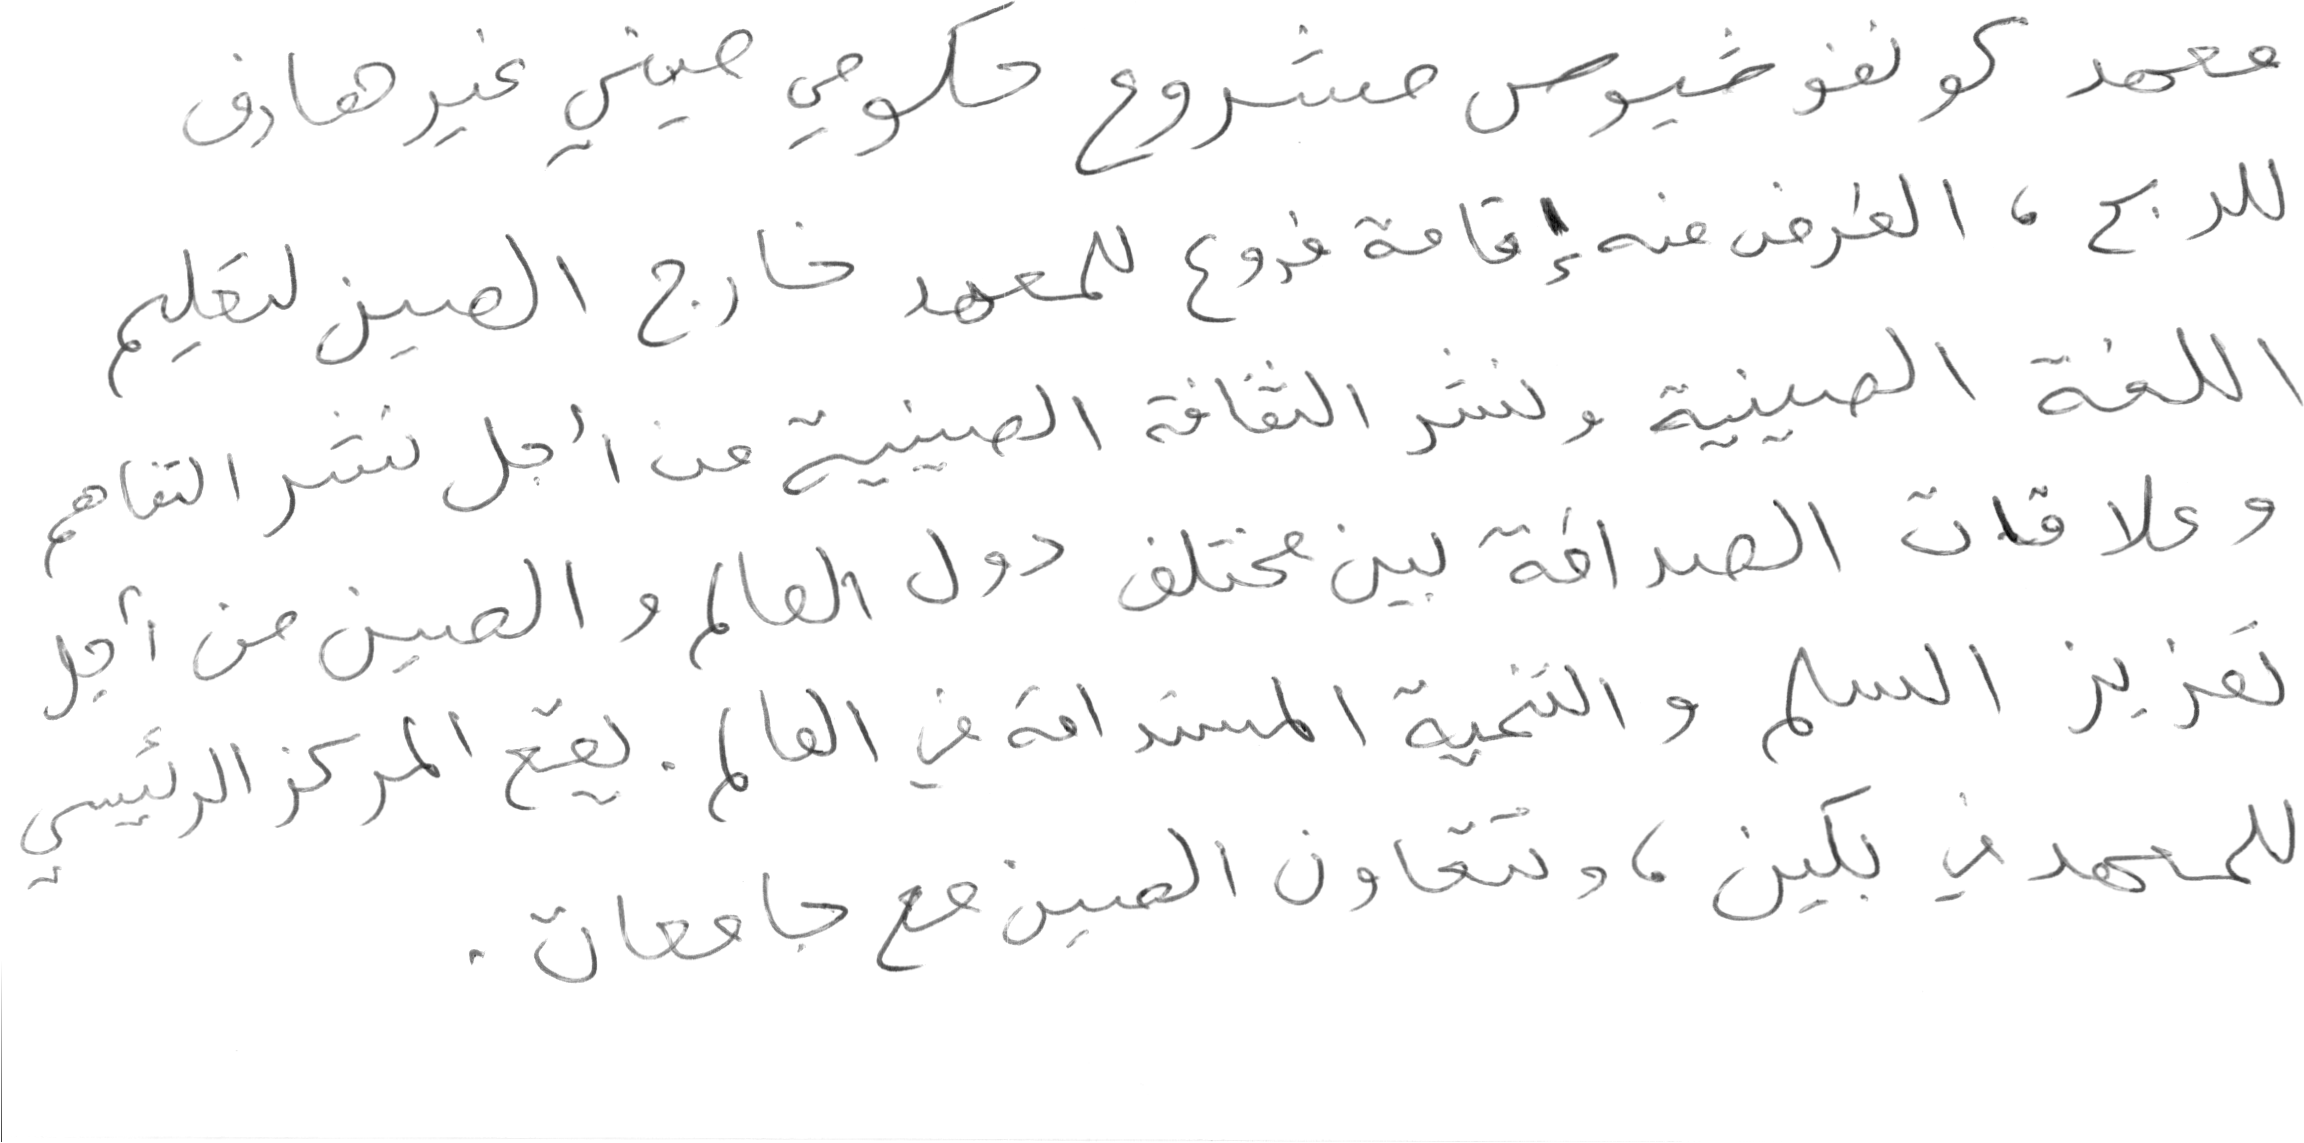 معهد كونفوشيوس مشروع حكومي صيني غير هادف
للربح ، الغرض منه إقامة فروع للمعهد خارج الصين لتعليم
اللغة الصينية ولنشر الثقافة الصينية من أجل نشر التفاهم
وعلاقات الصداقة بين مختلف دول العالم و الصين من أجل
تعزيز السلم و التنمية المستدامة في العالم. يقع المركز الرئيسي
للمعهد في بكين ، و تتعاون الصين مع جامعات .